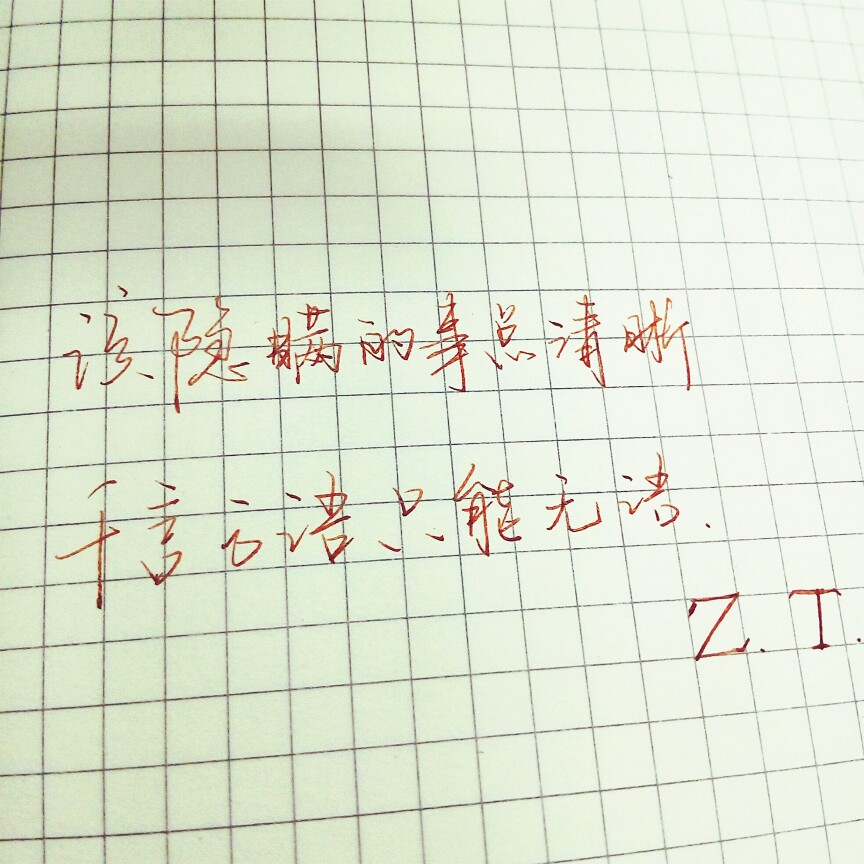 该隐瞒的事总清晰
千言万语只能无语.
Z.T.